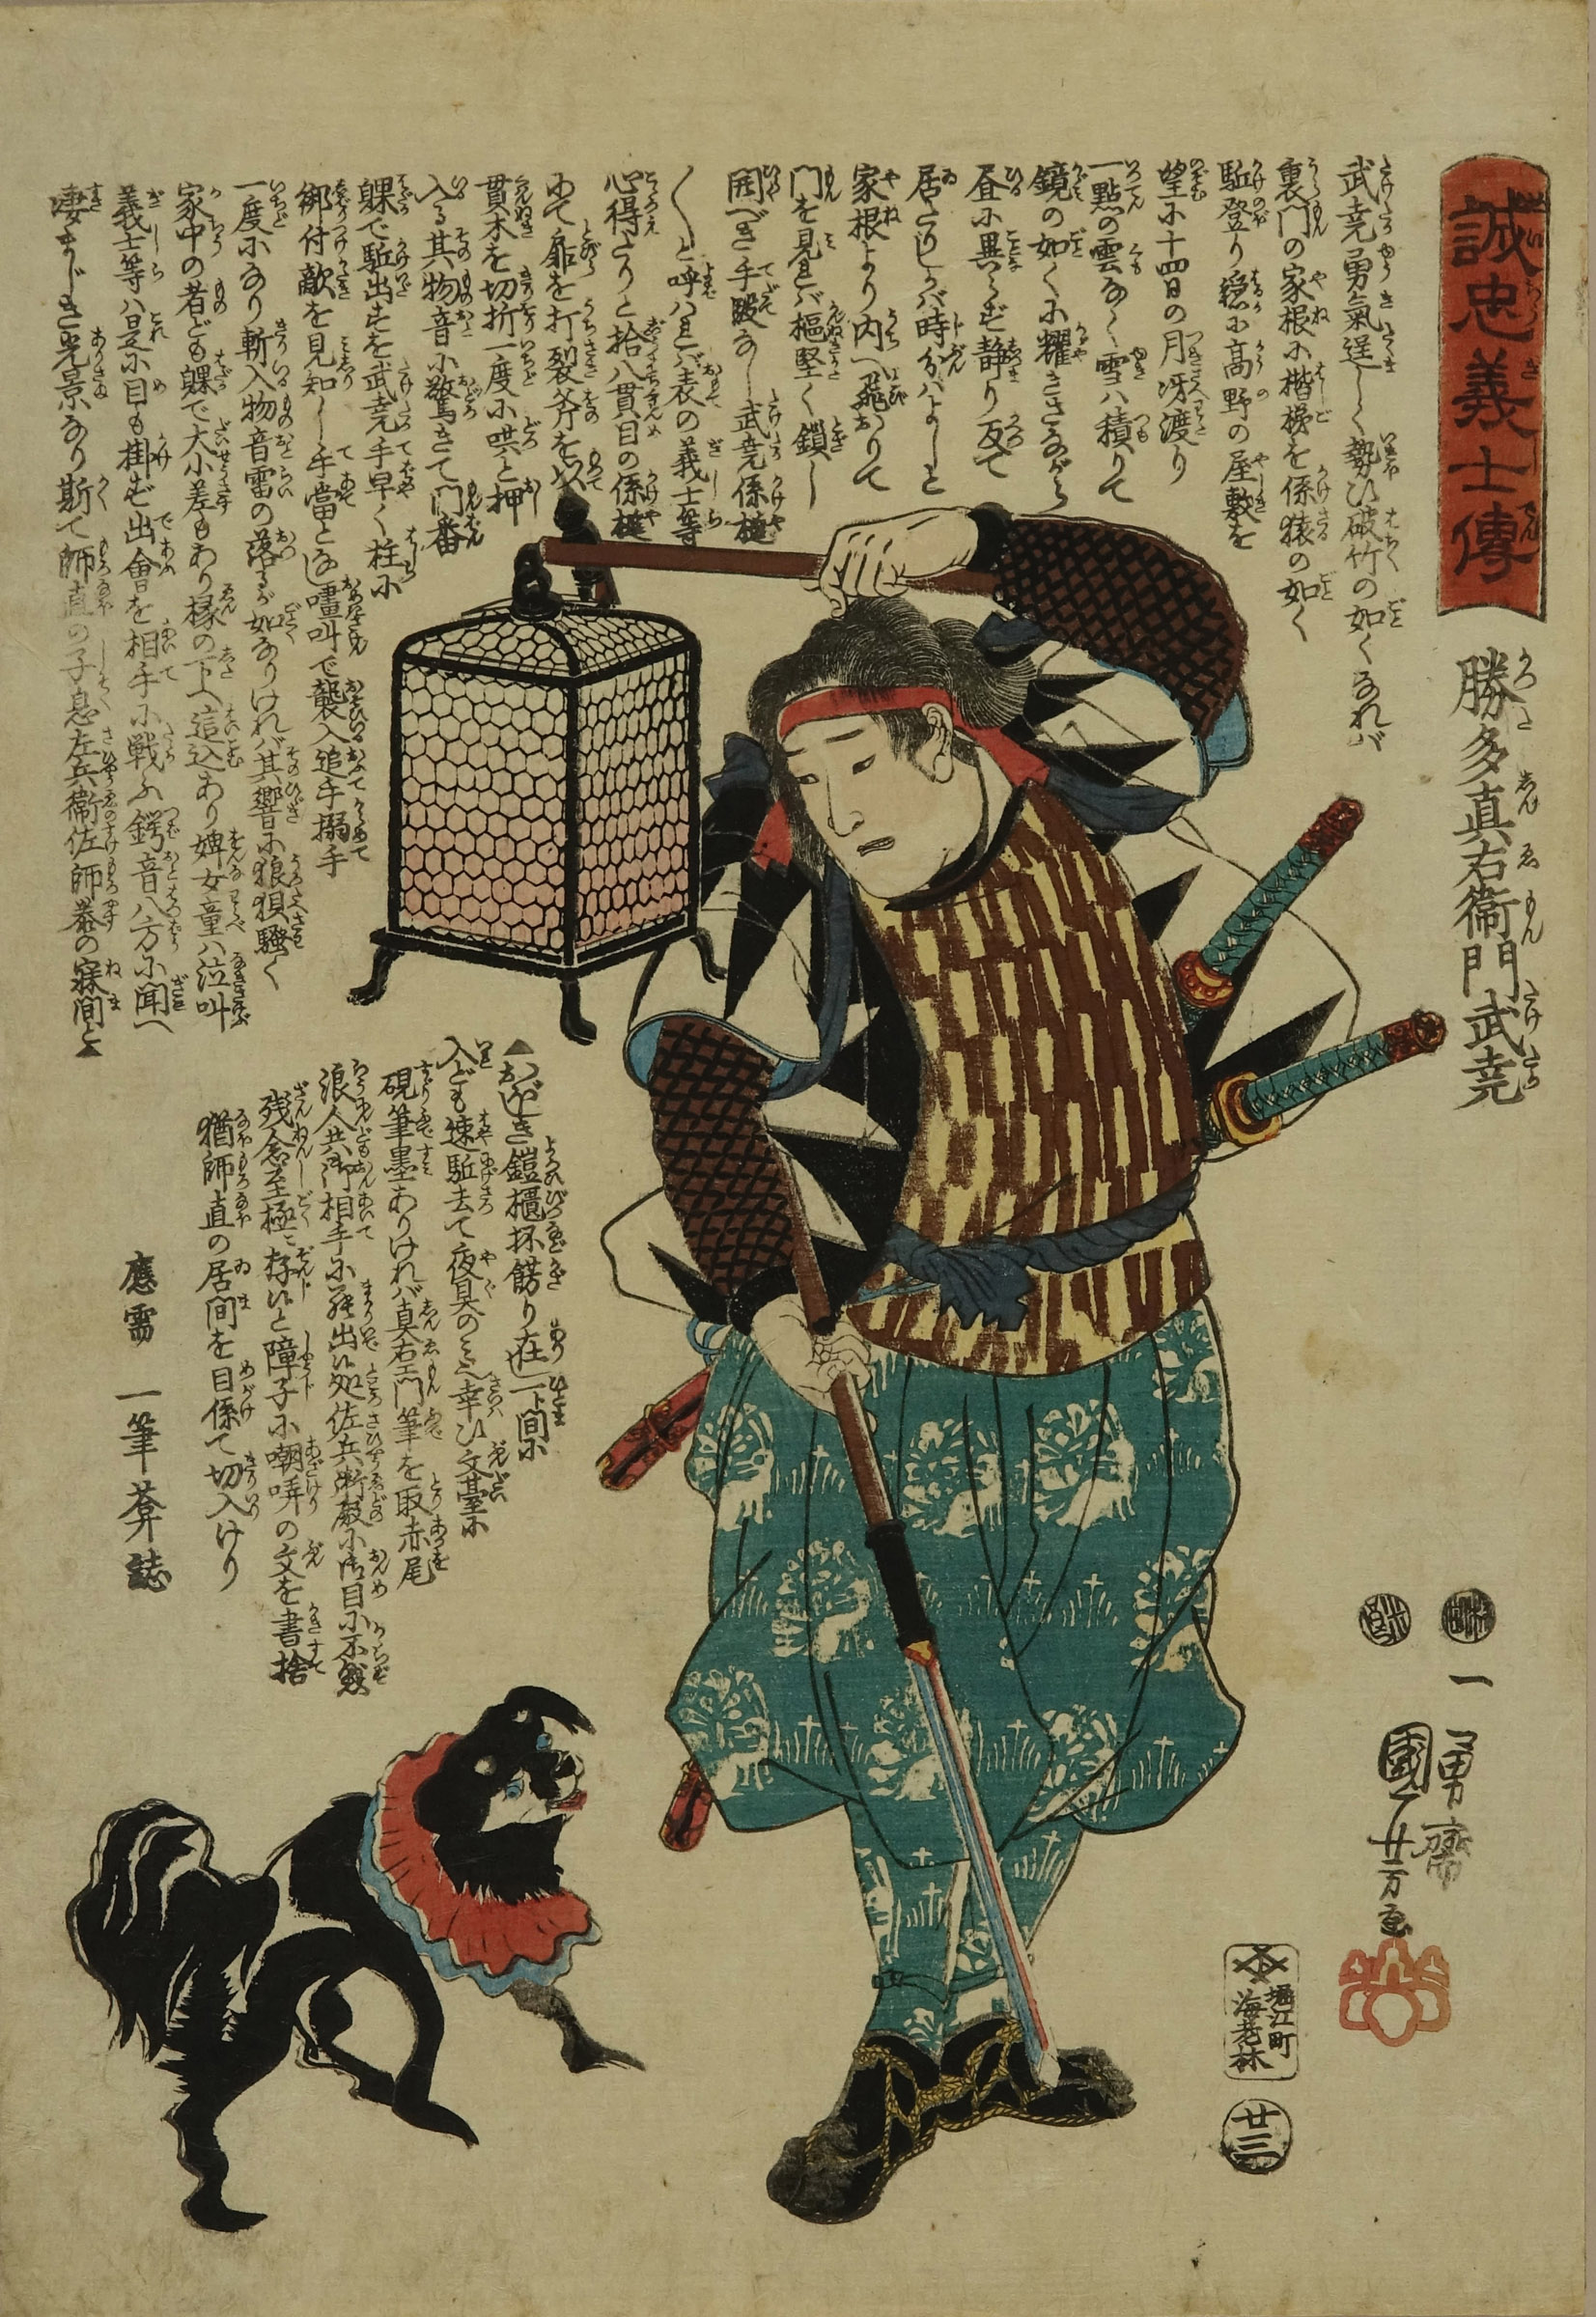 誠忠義士傳
勝多真右衞門武尭
武尭勇氣逞しく勢ひ破竹の如くなれバ
裏門の家根小楷梯を係猿の如く
駈登り穏に高野の屋敷を
望小十四日の月冴渡り
一點の雲なく雪ハ積りて
鏡の如く小耀きさながら
昼小異らず静り反て
居たりしが時分ハよしと
家根より内へ飛おりて
門を見れバ樞堅く鎖し
開べき手段なし武尭係𨫤
〱と呼ハれバ表の義士等
心得たりと拾八貫目の係
にて扉を打裂斧を以
貫木を切折一度小哄と押
入る其物音小驚きて門番
躶で駈出るを武尭手早く柱小
付敵を見知し手當となし 叫で襲入追手搦手
一度小なり斬入物音雷の落るが如なりけれバ其響小狼狽騒く
家中の者ども躶で大小差もあり椽の下へ這込あり婢女童ハ泣叫
義士等ハ是小目も掛ず出會を相手小戦ふ鍔音八方小聞へ
凄まじき光景なり斯て師直の子息左兵衞佐師泰の寐間と
おぼしき鎧櫃抔餝り在一ト間小
入ども速駈去て夜具のミ幸ひ文䑓小
硯筆墨ありけれバ真右エ門筆を取赤尾
浪人共御相手小罷出候処佐兵衛殿小御目小不懸
残念至極ニ存候と障子小嘲哢の文を書捨
猶師直の居間を目係て切入けり
應需 一筆葊誌
一勇齋
國芳画
堀江町
海老林
廿三